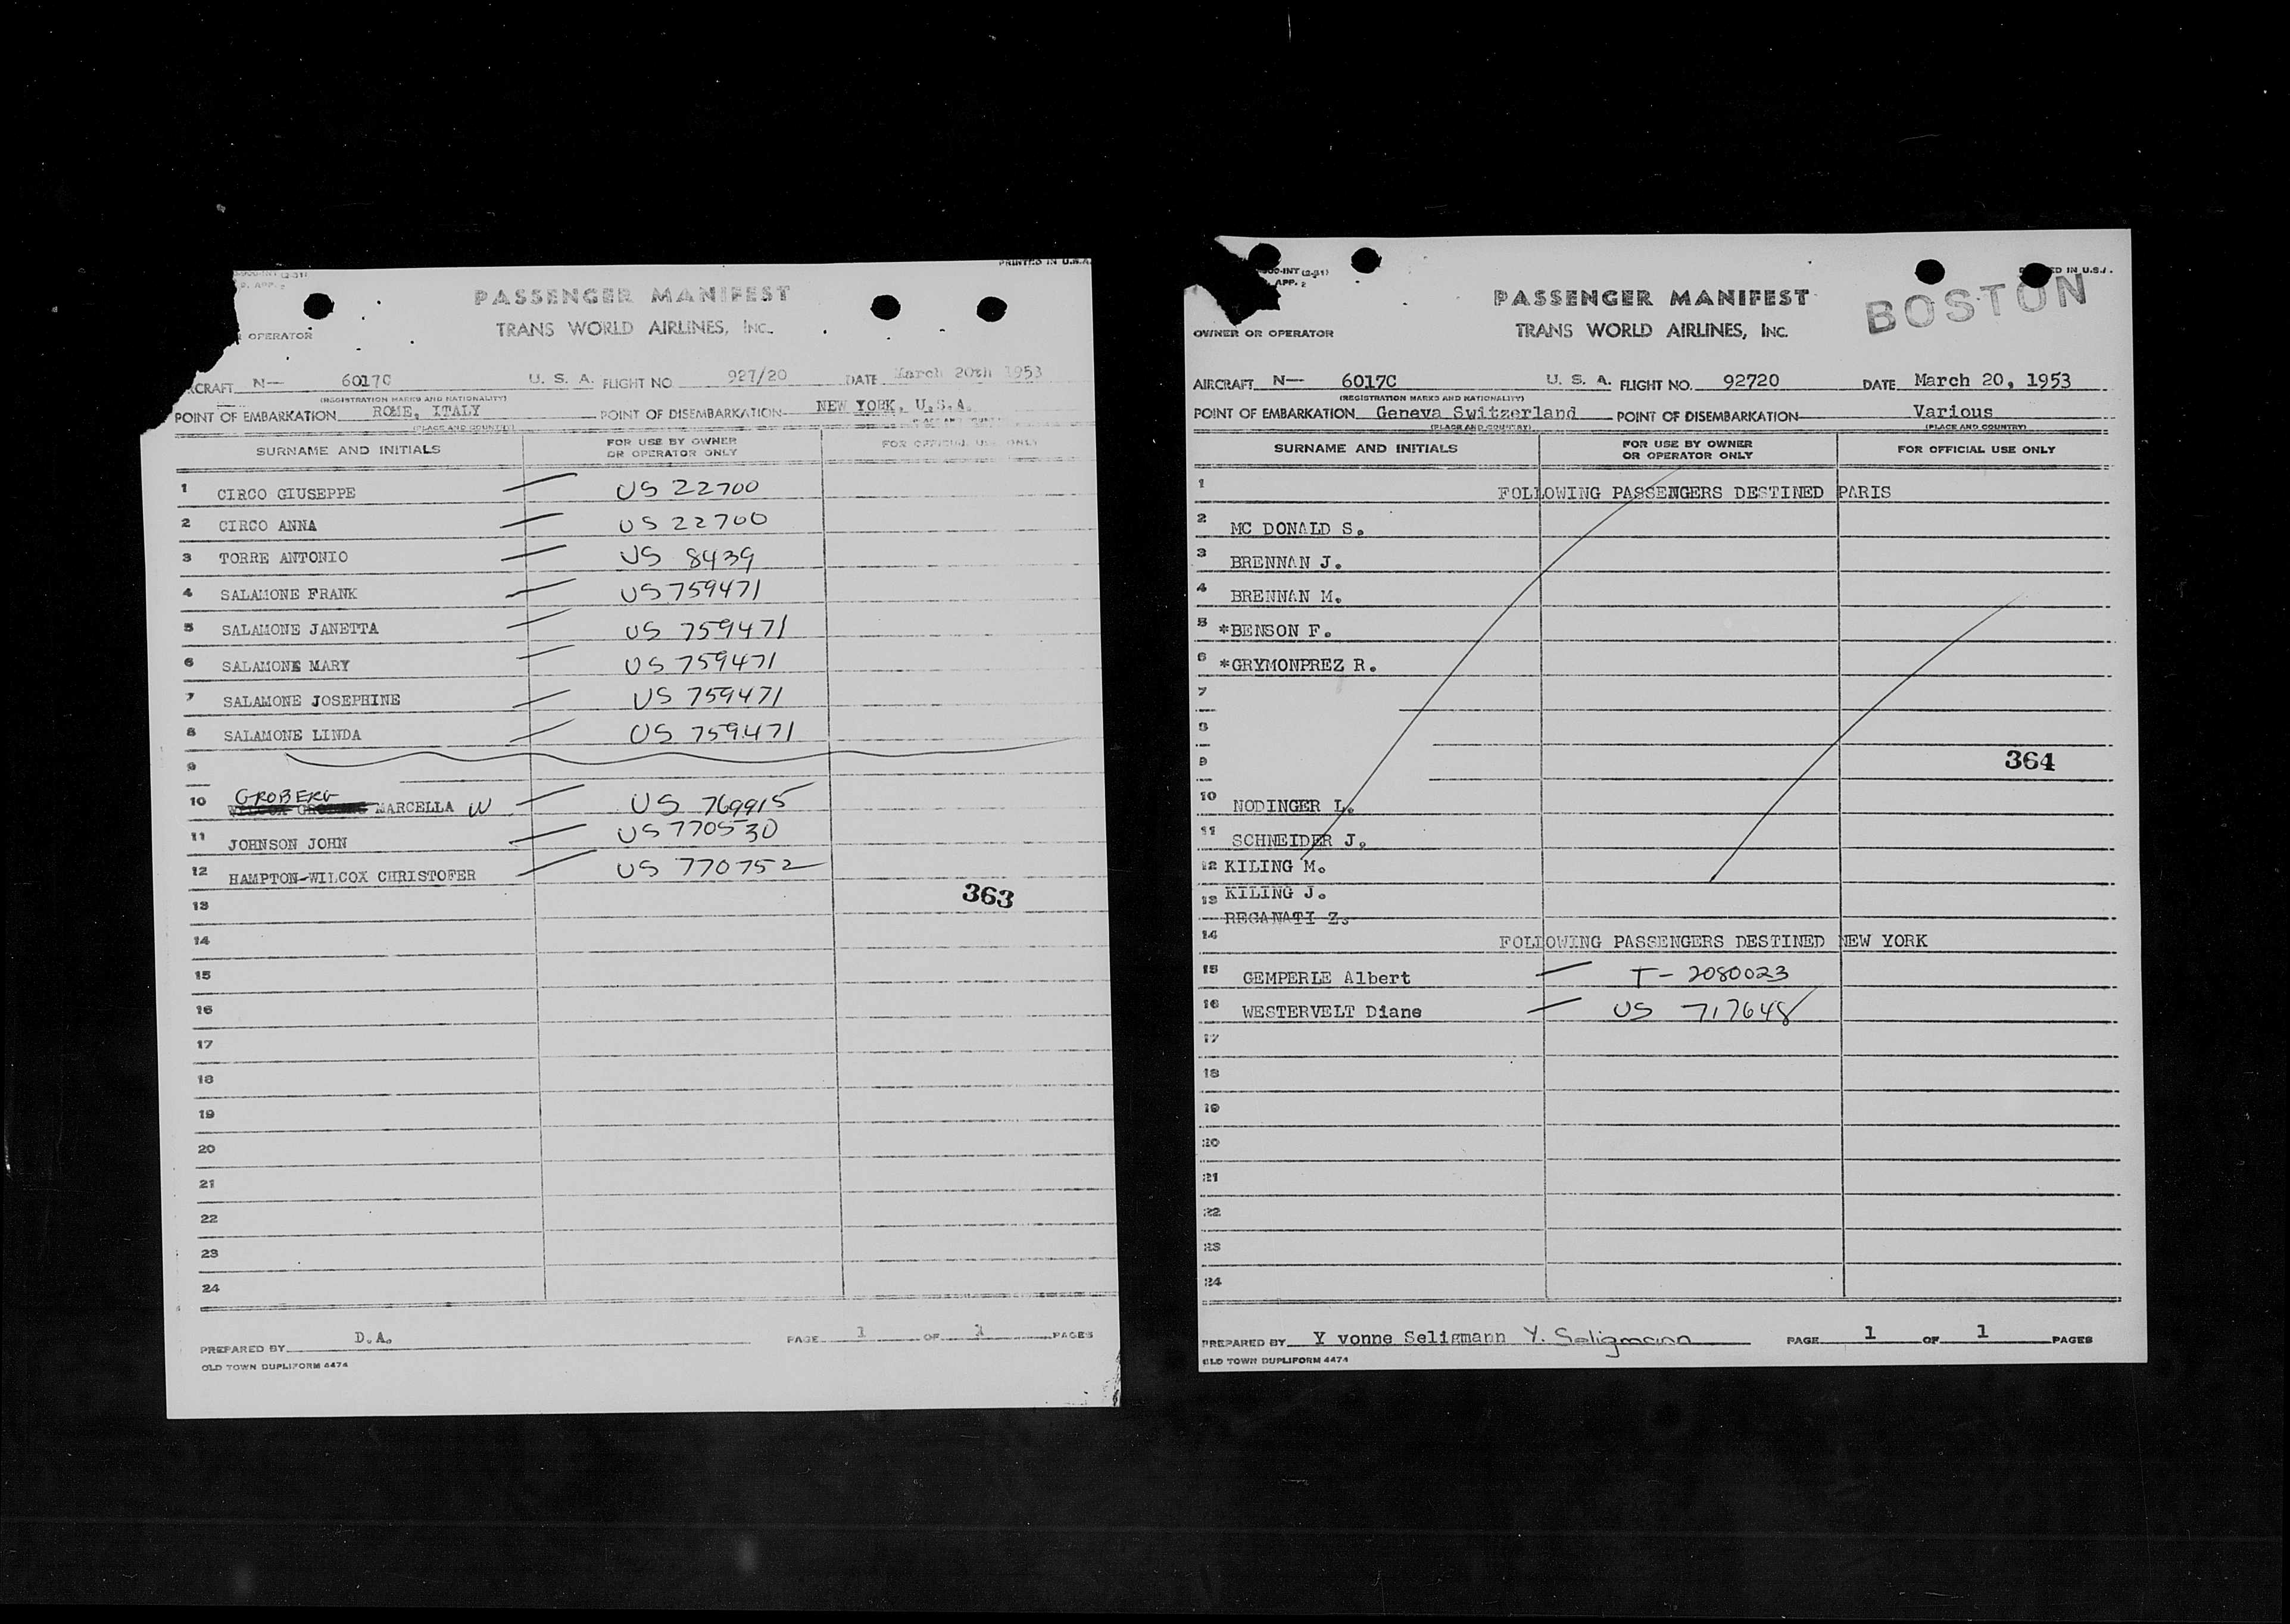 PRINTED IN U.S.A.
PASSENGER MANIFEST
TRANS WORLD AIRLINES, INC.
OPERATOR
CRAFT N— 6017C U. S. A. FLIGHT NO. 927/20 DATE March 20th 1953
(REGISTRATION MARKS AND NATIONALITY)
POINT OF EMBARKATION ROME, ITALY POINT OF DISEMBARKATION NEW YORK, U.S.A.
(PLACE AND COUNTRY)
SURNAME AND INITIALS FOR USE BY OWNER OR OPERATOR ONLY FOR OFFICIAL USE ONLY
1 CIRCO GIUSEPPE US 22700
2 CIRCO ANNA US 22700
3 TORRE ANTONIO US 8439
4 SALAMONE FRANK US 759471
5 SALAMONE JANETTA US 759471
6 SALAMONE MARY US 759471
7 SALAMONE JOSEPHINE US 759471
8 SALAMONE LINDA US 759471
9
GROBERG
10 MARCELLA W US 769915
11 JOHNSON JOHN US 770530
12 HAMPTON-WILCOX CHRISTOFER US 770752
13 363
14
15
16
17
18
19
20
21
22
23
24
PREPARED BY D.A. PAGE 1 OF 1 PAGES
OLD TOWN DUPLIFORM 4474
00-INT (2-51)
APP. 2
PASSENGER MANIFEST
BOSTON
OWNER OR OPERATOR TRANS WORLD AIRLINES, INC.
AIRCRAFT N— 6017C U. S. A. FLIGHT NO. 92720 DATE March 20, 1953
(REGISTRATION MARKS AND NATIONALITY)
POINT OF EMBARKATION Geneva Switzerland POINT OF DISEMBARKATION Various
(PLACE AND COUNTRY) (PLACE AND COUNTRY)
SURNAME AND INITIALS FOR USE BY OWNER OR OPERATOR ONLY FOR OFFICIAL USE ONLY
1 FOLLOWING PASSENGERS DESTINED PARIS
2 MC DONALD S.
3 BRENNAN J.
4 BRENNAN M.
5 *BENSON F.
6 *GRYMONPREZ R.
7
8
9 364
10 NODINGER L.
11 SCHNEIDER J.
12 KILING M.
13 KILING J.
RECANATI Z.
14 FOLLOWING PASSENGERS DESTINED NEW YORK
15 GEMPERLE Albert T- 2080023
16 WESTERVELT Diane US 717648
17
18
19
20
21
22
23
24
PREPARED BY Y vonne Seligmann Y. Seligmann PAGE 1 OF 1 PAGES
OLD TOWN DUPLIFORM 4474